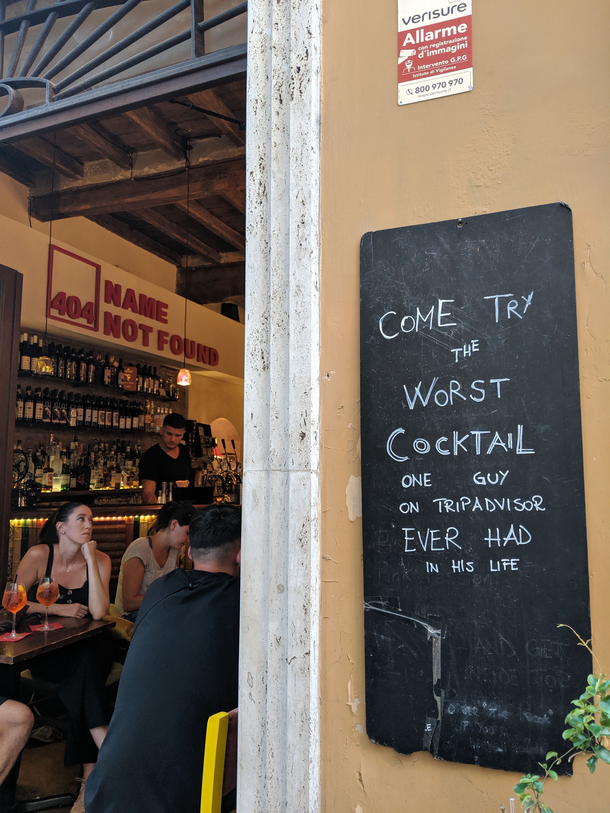 verisure
Allarme
con registrazione
d'immagini
Intervento G.P.G
Istituto di Vigilanza
800 970 970
www.verisure.it
404
NAME
NOT FOUND
COME TRY
THE
WORST
COCKTAIL
ONE GUY
ON TRIPADVISOR
EVER HAD
IN HIS LIFE